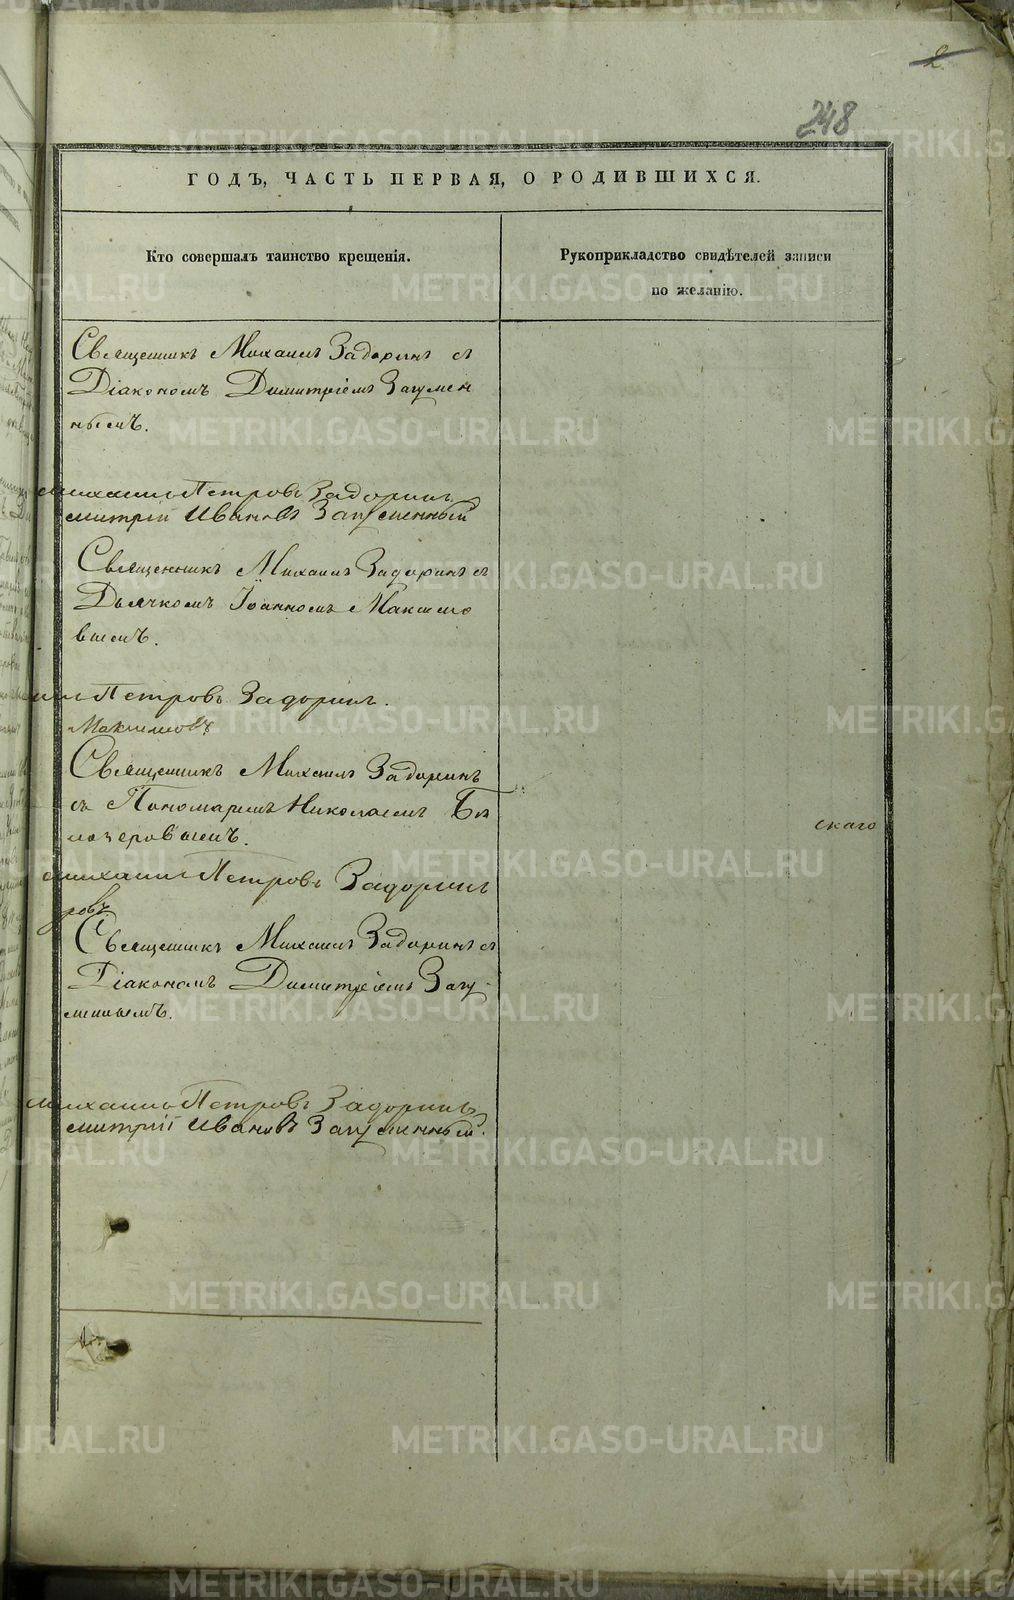 2
248
ГОДЪ, ЧАСТЬ ПЕРВАЯ, О РОДИВШИХСЯ.
Кто совершалъ таинство крещенія.
Рукоприкладство свидѣтелей записи
по желанію.
Священникъ Михаилъ Задоринъ съ
Діакономъ Димитріемъ Загумен
нымъ.
Михаилъ Петровъ Задоринъ
митрій Ивановъ Загуменный
Священникъ Михаилъ Задоринъ съ
Дьячкомъ Іоанномъ Максимо
вымъ.
Петровъ Задоринъ.
Максимовъ
Священникъ Михаилъ Задоринъ
съ Пономаремъ Николаемъ Бѣ
лозеровымъ.
скаго
Михаилъ Петровъ Задоринъ
ровъ
Священникъ Михаилъ Задоринъ съ
Діакономъ Димитріемъ Загу-
меннымъ.
Михаилъ Петровъ Задоринъ
митрій Ивановъ Загуменный.
METRIKI.GASO-URAL.RU